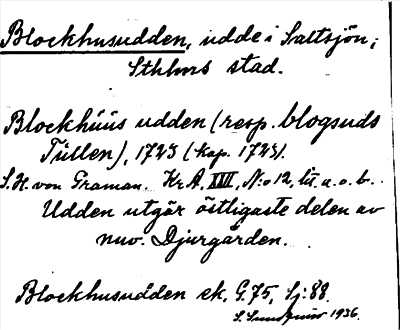 Blockhusudden, udde i Saltsjön,
Sthlms stad.
Blockhúús udden (resp. blogsuds
Tullen), 1723 (kap. 1723).
S. H. von Graman. Kr. A, XXII, N:o 12, a. o. b.
Udden utgör östligaste delen av
nuv. Djurgården.
Blockhusudden ek, G. 75, Sj: 88.
1936.